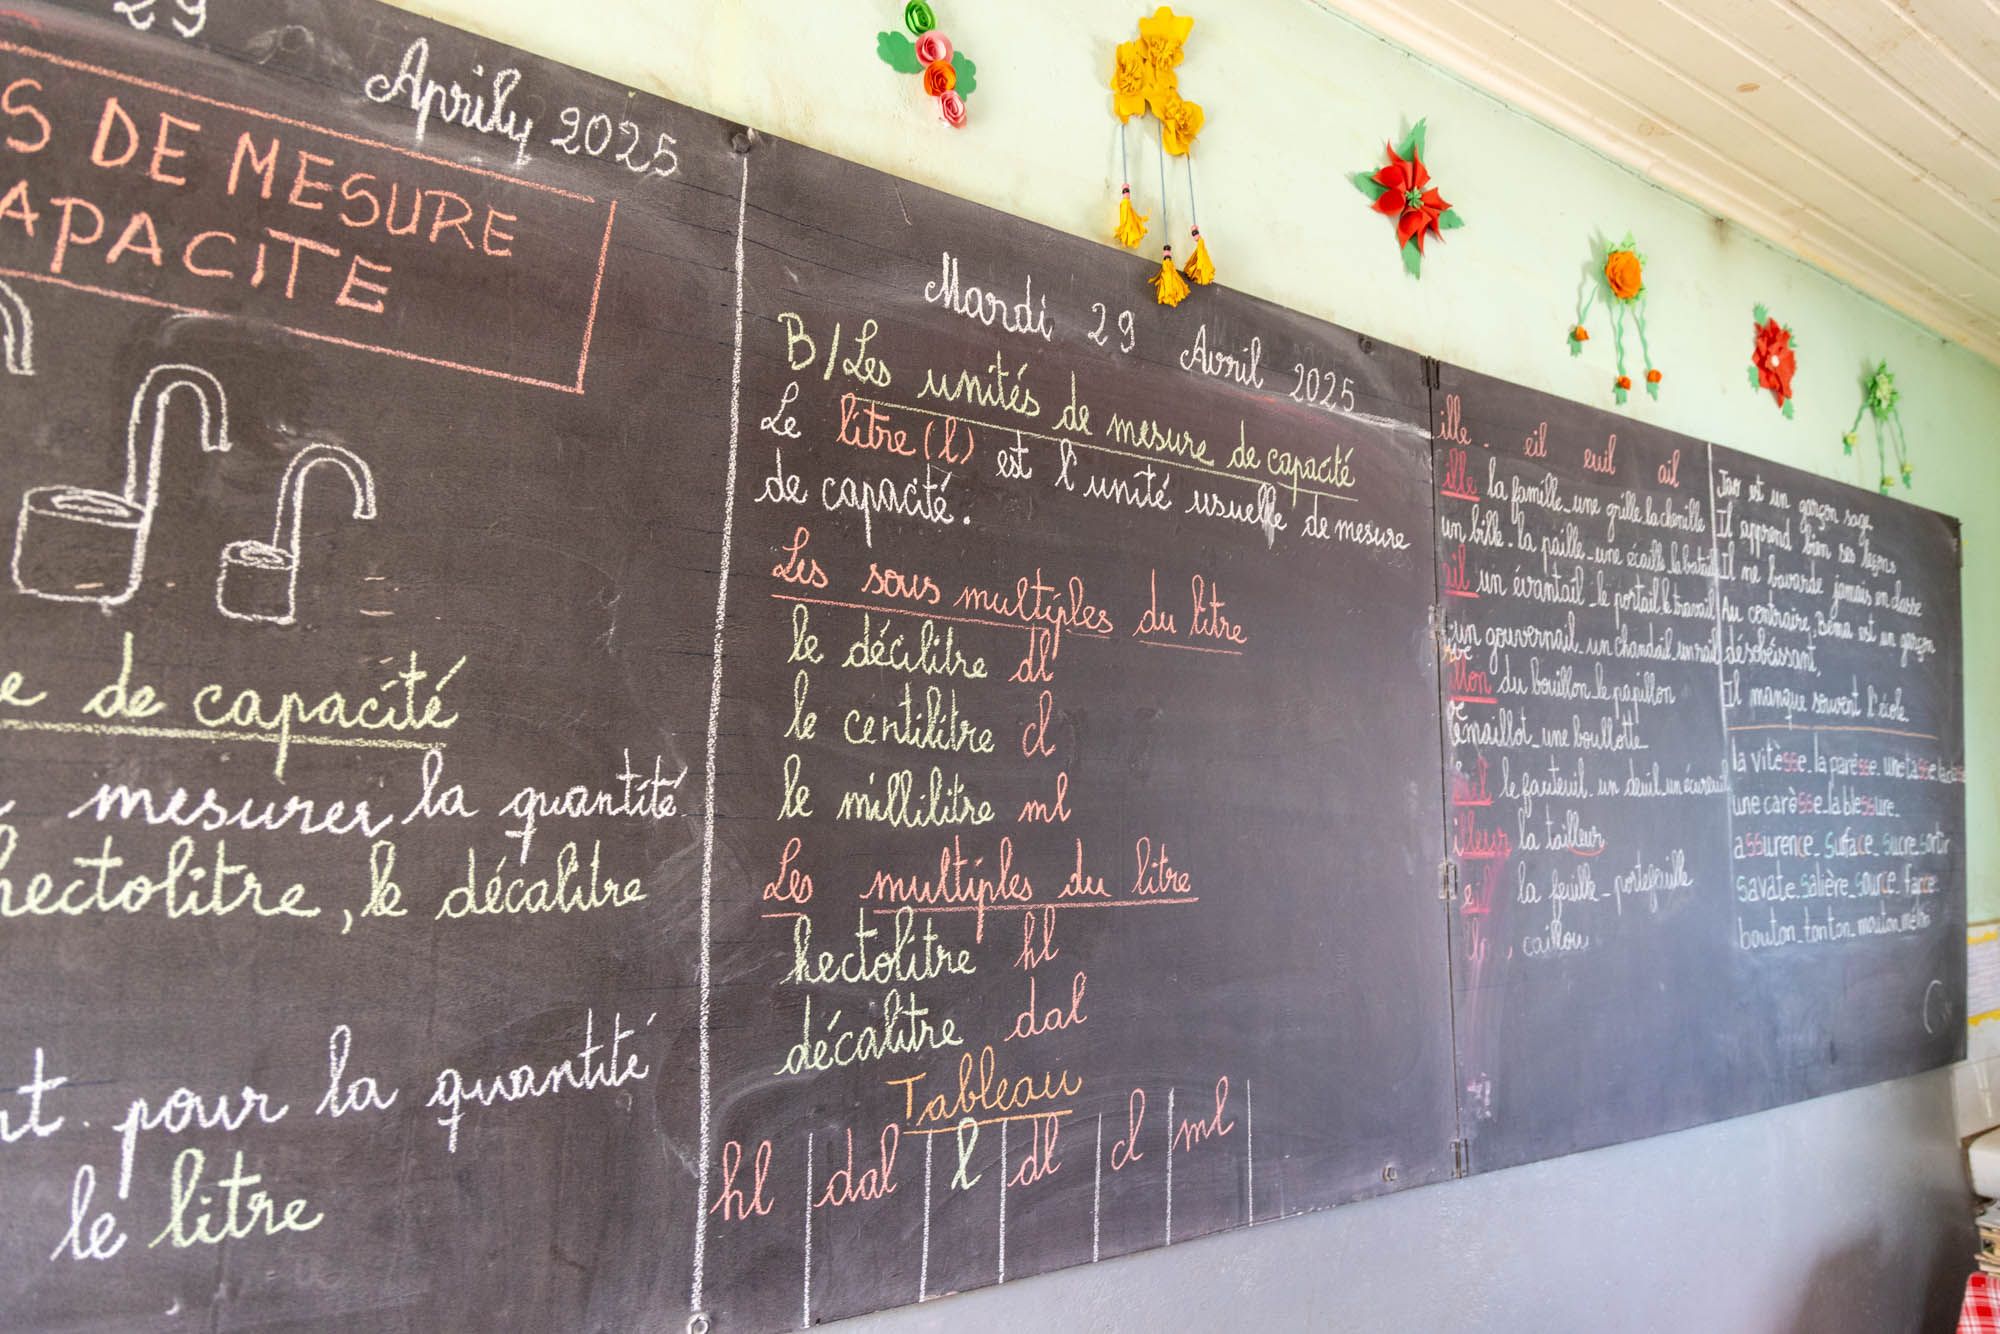 29 Aprily 2025
S DE MESURE
APACITE
e de capacité
mesurer la quantité
hectolitre, le décalitre
nt pour la quantité
le litre
Mardi 29 Avril 2025
B/ Les unités de mesure de capacité
Le litre (l) est l'unité usuelle de mesure
de capacité.
Les sous multiples du litre
le décilitre dl
le centilitre cl
le millilitre ml
Les multiples du litre
hectolitre hl
décalitre dal
Tableau
hl dal l dl cl ml
ille - eil euil ail
ille la famille - une grille la chenille
un bille - la paille - une écaille la
ail un évantail - le portail le travail
un gouvernail un chandail un rail
illon du bouillon - le papillon
maillot - une bouillotte
le fauteuil - un deuil - un écureuil
illeur la tailleur
eil la feuille - portefeuille
caillou
est un garçon sage
Il apprend bien ses leçons
Il ne bavarde jamais en classe
Au contraire, Béma est un garçon
désobéissant,
Il manque souvent l'école
la vitèsse - la parèsse - une tasse
une carèsse - la blessure -
assurence - surface - sucre - sortir
savate - salière - source - farce -
bouton - tonton - mouton - melon